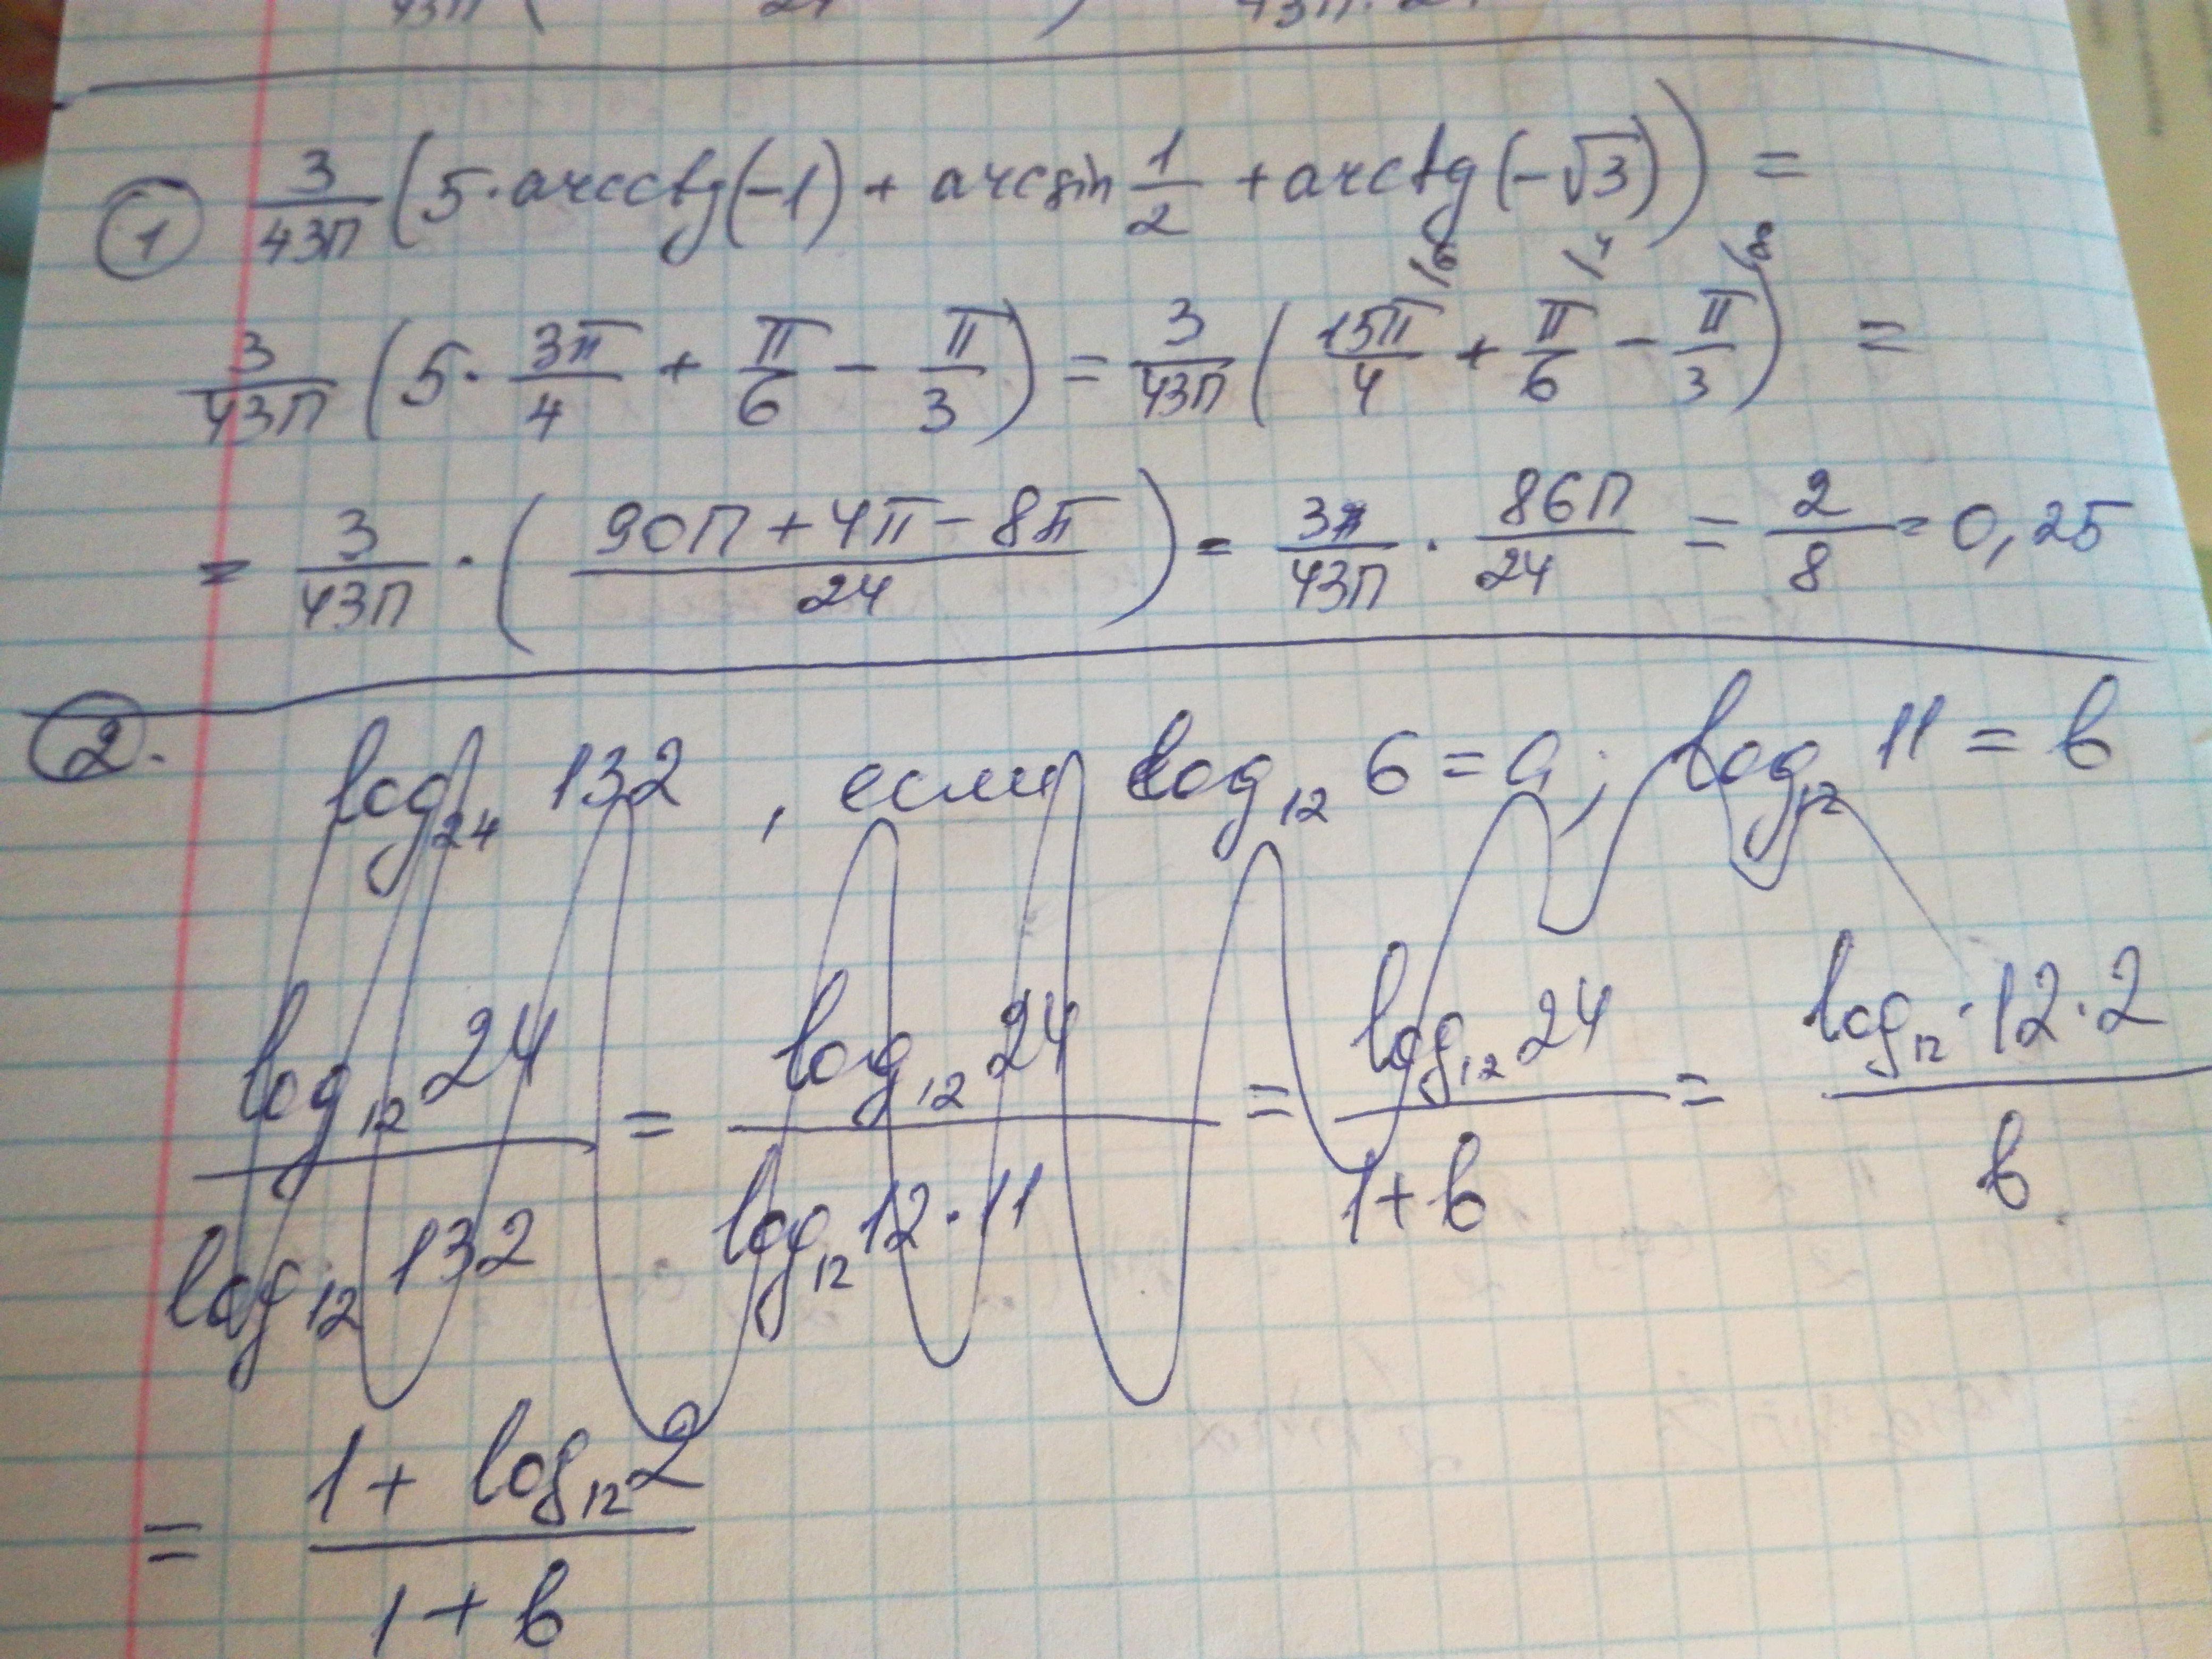 ① 3/43π (5·arcctg(-1) + arcsin 1/2 + arctg(-√3)) =
3/43π (5· 3π/4 + π/6 - π/3) = 3/43π ( 15π/4 + π/6 - π/3 ) =
= 3/43π · ( 90π + 4π - 8π / 24 ) = 3/43π · 86π/24 = 2/8 = 0,25
②. log₂₄ 132 , если log₁₂ 6 = a; log₁₂ 11 = b
log₁₂ 24 / log₁₂ 132 = log₁₂ 24 / log₁₂ 12·11 = log₁₂ 24 / 1+b = log₁₂·12·2 / b
= 1 + log₁₂ 2 / 1 + b